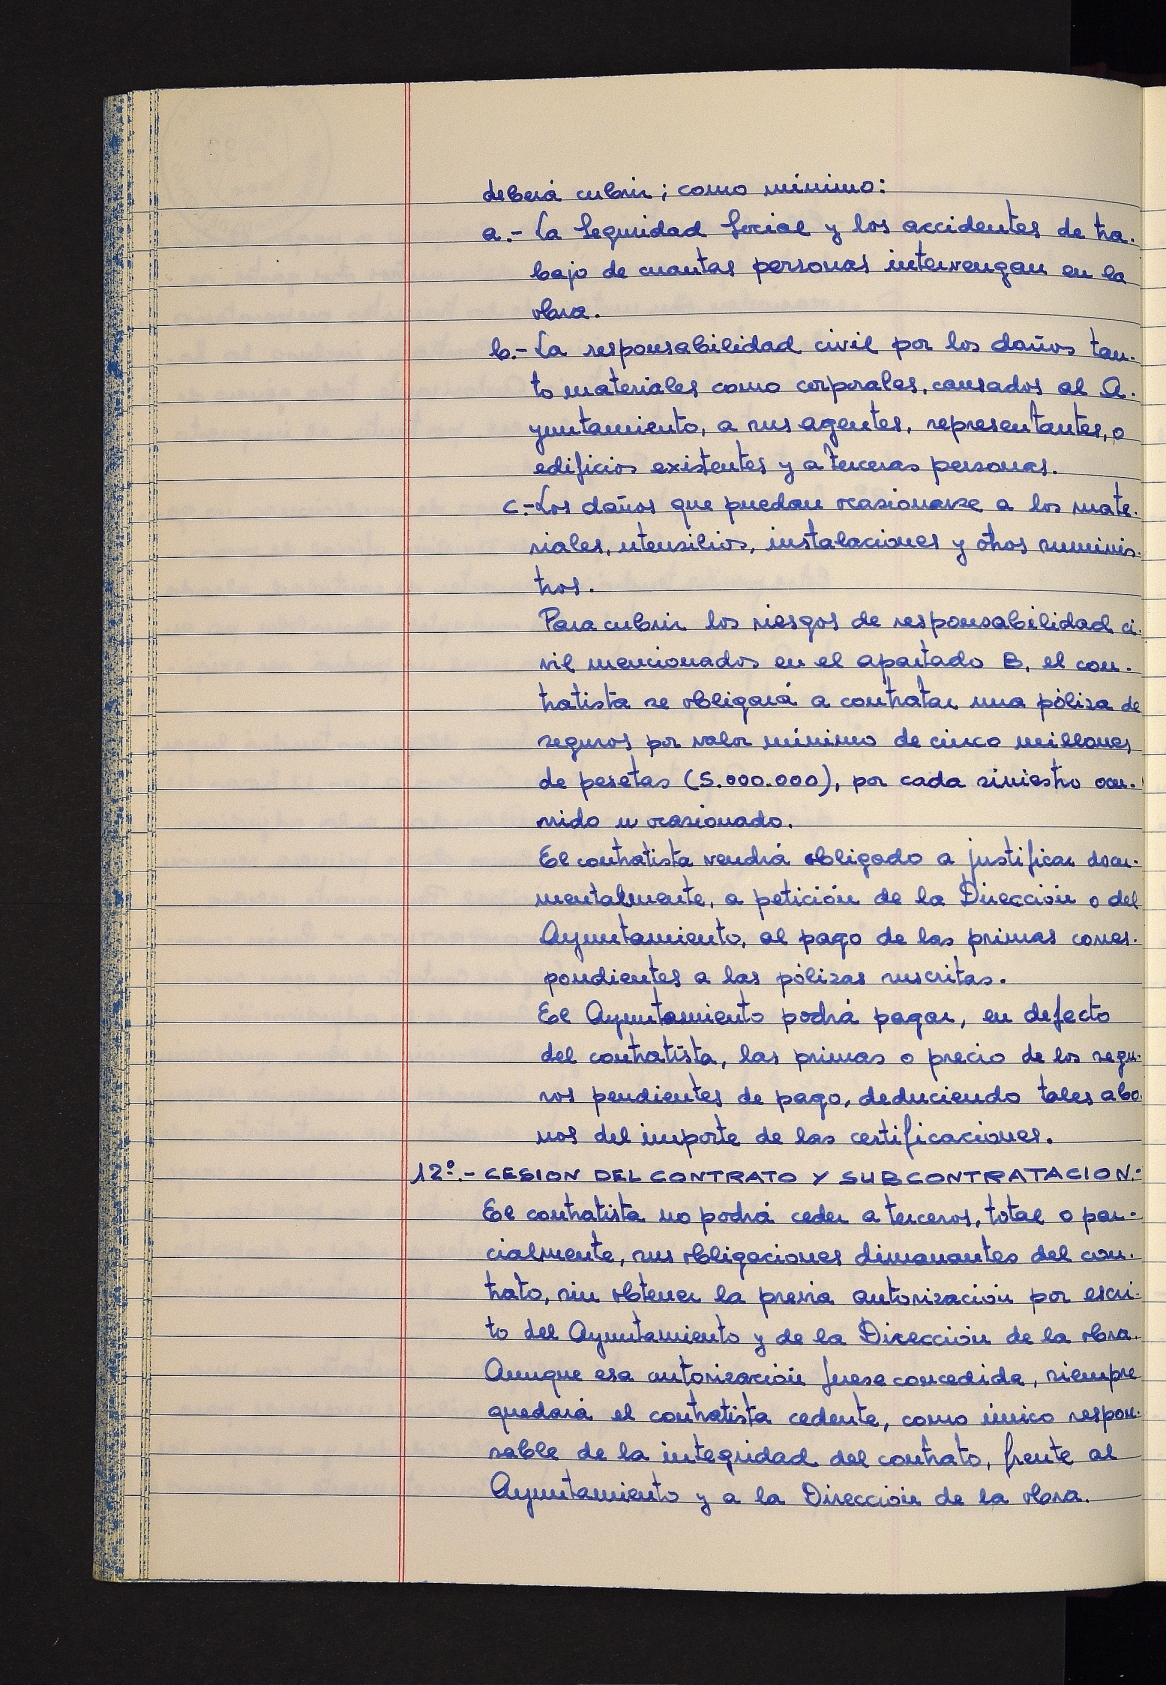 deberá cubrir; como mínimo:
a.- La Seguridad Social y los accidentes de tra-
bajo de cuantas personas intervengan en la
obra.
b.- La responsabilidad civil por los daños tan-
to materiales como corporales, causados al A-
yuntamiento, a sus agentes, representantes, o
edificios existentes y a terceras personas.
c.- Los daños que puedan ocasionarse a los mate-
riales, utensilios, instalaciones y otros suminis-
tros.
Para cubrir los riesgos de responsabilidad ci-
vil mencionados en el apartado B, el con-
tratista se obligará a contratar una póliza de
seguros por valor mínimo de cinco millones
de pesetas (5.000.000), por cada siniestro ocu-
rrido u ocasionado.
El contratista vendrá obligado a justificar docu-
mentalmente, a petición de la Dirección o del
Ayuntamiento, al pago de las primas corres-
pondientes a las pólizas suscritas.
El Ayuntamiento podrá pagar, en defecto
del contratista, las primas o precio de los segu-
ros pendientes de pago, deduciendo tales abo-
nos del importe de las certificaciones.
12º.- CESION DEL CONTRATO Y SUBCONTRATACION.-
El contratista no podrá ceder a terceros, total o par-
cialmente, sus obligaciones dimanantes del con-
trato, sin obtener la previa autorización por escri-
to del Ayuntamiento y de la Dirección de la obra.
Aunque esa autorización fuese concedida, siempre
quedará el contratista cedente, como único respon-
sable de la integridad del contrato, frente al
Ayuntamiento y a la Dirección de la obra.